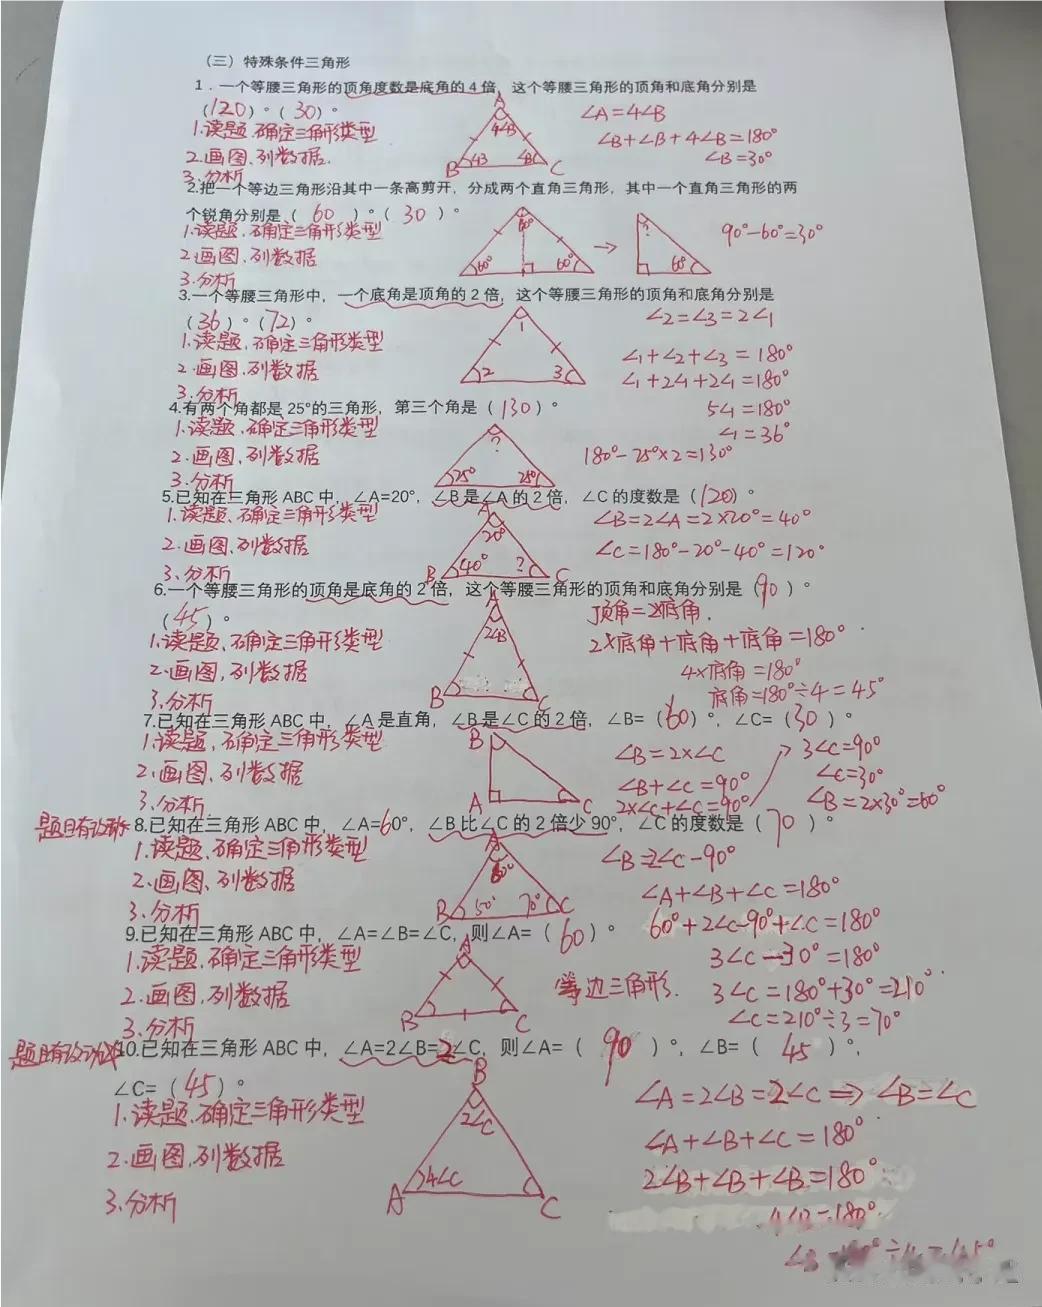 （三）特殊条件三角形
1．一个等腰三角形的顶角度数是底角的4倍，这个等腰三角形的顶角和底角分别是
（120）°（30）°
1.读题、确定三角形类型
2.画图、列数据.
3.分析
A
4∠B
B
∠B
∠B
C
∠A=4∠B
∠B+∠B+4∠B=180°
∠B=30°
2.把一个等边三角形沿其中一条高剪开，分成两个直角三角形，其中一个直角三角形的两
个锐角分别是（ 60 ）°（ 30 ）°
1.读题、确定三角形类型
2.画图、列数据
3.分析
60°
60°
60°
→
?
60°
90°-60°=30°
3.一个等腰三角形中，一个底角是顶角的2倍，这个等腰三角形的顶角和底角分别是
（36）°（72）°
1.读题、确定三角形类型
2.画图、列数据
3.分析
1
2
3
∠2=∠3=2∠1
∠1+∠2+∠3=180°
∠1+2∠1+2∠1=180°
5∠1=180°
∠1=36°
4.有两个角都是25°的三角形，第三个角是（130）°
1.读题、确定三角形类型
2.画图、列数据
3.分析
?
25°
25°
180°-25°×2=130°
5.已知在三角形ABC中，∠A=20°，∠B是∠A的2倍，∠C的度数是（120）°
1.读题、确定三角形类型
2.画图、列数据
3.分析
A
20°
B
40°
?
C
∠B=2∠A=2×20°=40°
∠C=180°-20°-40°=120°
6.一个等腰三角形的顶角是底角的2倍，这个等腰三角形的顶角和底角分别是（90）°
（45）°
1.读题、确定三角形类型
2.画图、列数据
3.分析
A
2∠B
B
C
顶角=2×底角.
2×底角+底角+底角=180°
4×底角=180°
底角=180°÷4=45°
7.已知在三角形ABC中，∠A是直角，∠B是∠C的2倍，∠B=（60）°，∠C=（30）°
1.读题、确定三角形类型
2.画图、列数据
3.分析
B
A
C
∠B=2×∠C
∠B+∠C=90°
2×∠C+∠C=90°
3∠C=90°
∠C=30°
∠B=2×30°=60°
8.已知在三角形ABC中，∠A=60°，∠B比∠C的2倍少90°，∠C的度数是（ 70 ）°
1.读题、确定三角形类型
2.画图、列数据
3.分析
A
60°
B
50°
70°
C
∠B=2∠C-90°
∠A+∠B+∠C=180°
60°+2∠C-90°+∠C=180°
3∠C-30°=180°
3∠C=180°+30°=210°
∠C=210°÷3=70°
9.已知在三角形ABC中，∠A=∠B=∠C，则∠A=（60）°
1.读题、确定三角形类型
2.画图、列数据
3.分析
A
B
C
等边三角形.
10.已知在三角形ABC中，∠A=2∠B=2∠C，则∠A=（ 90 ）°，∠B=（ 45 ）°，
∠C=（45）°
1.读题、确定三角形类型
2.画图、列数据
3.分析
B
2∠C
A
4∠C
C
∠A=2∠B=2∠C⇒∠B=∠C
∠A+∠B+∠C=180°
2∠B+∠B+∠B=180°
4∠B=180°